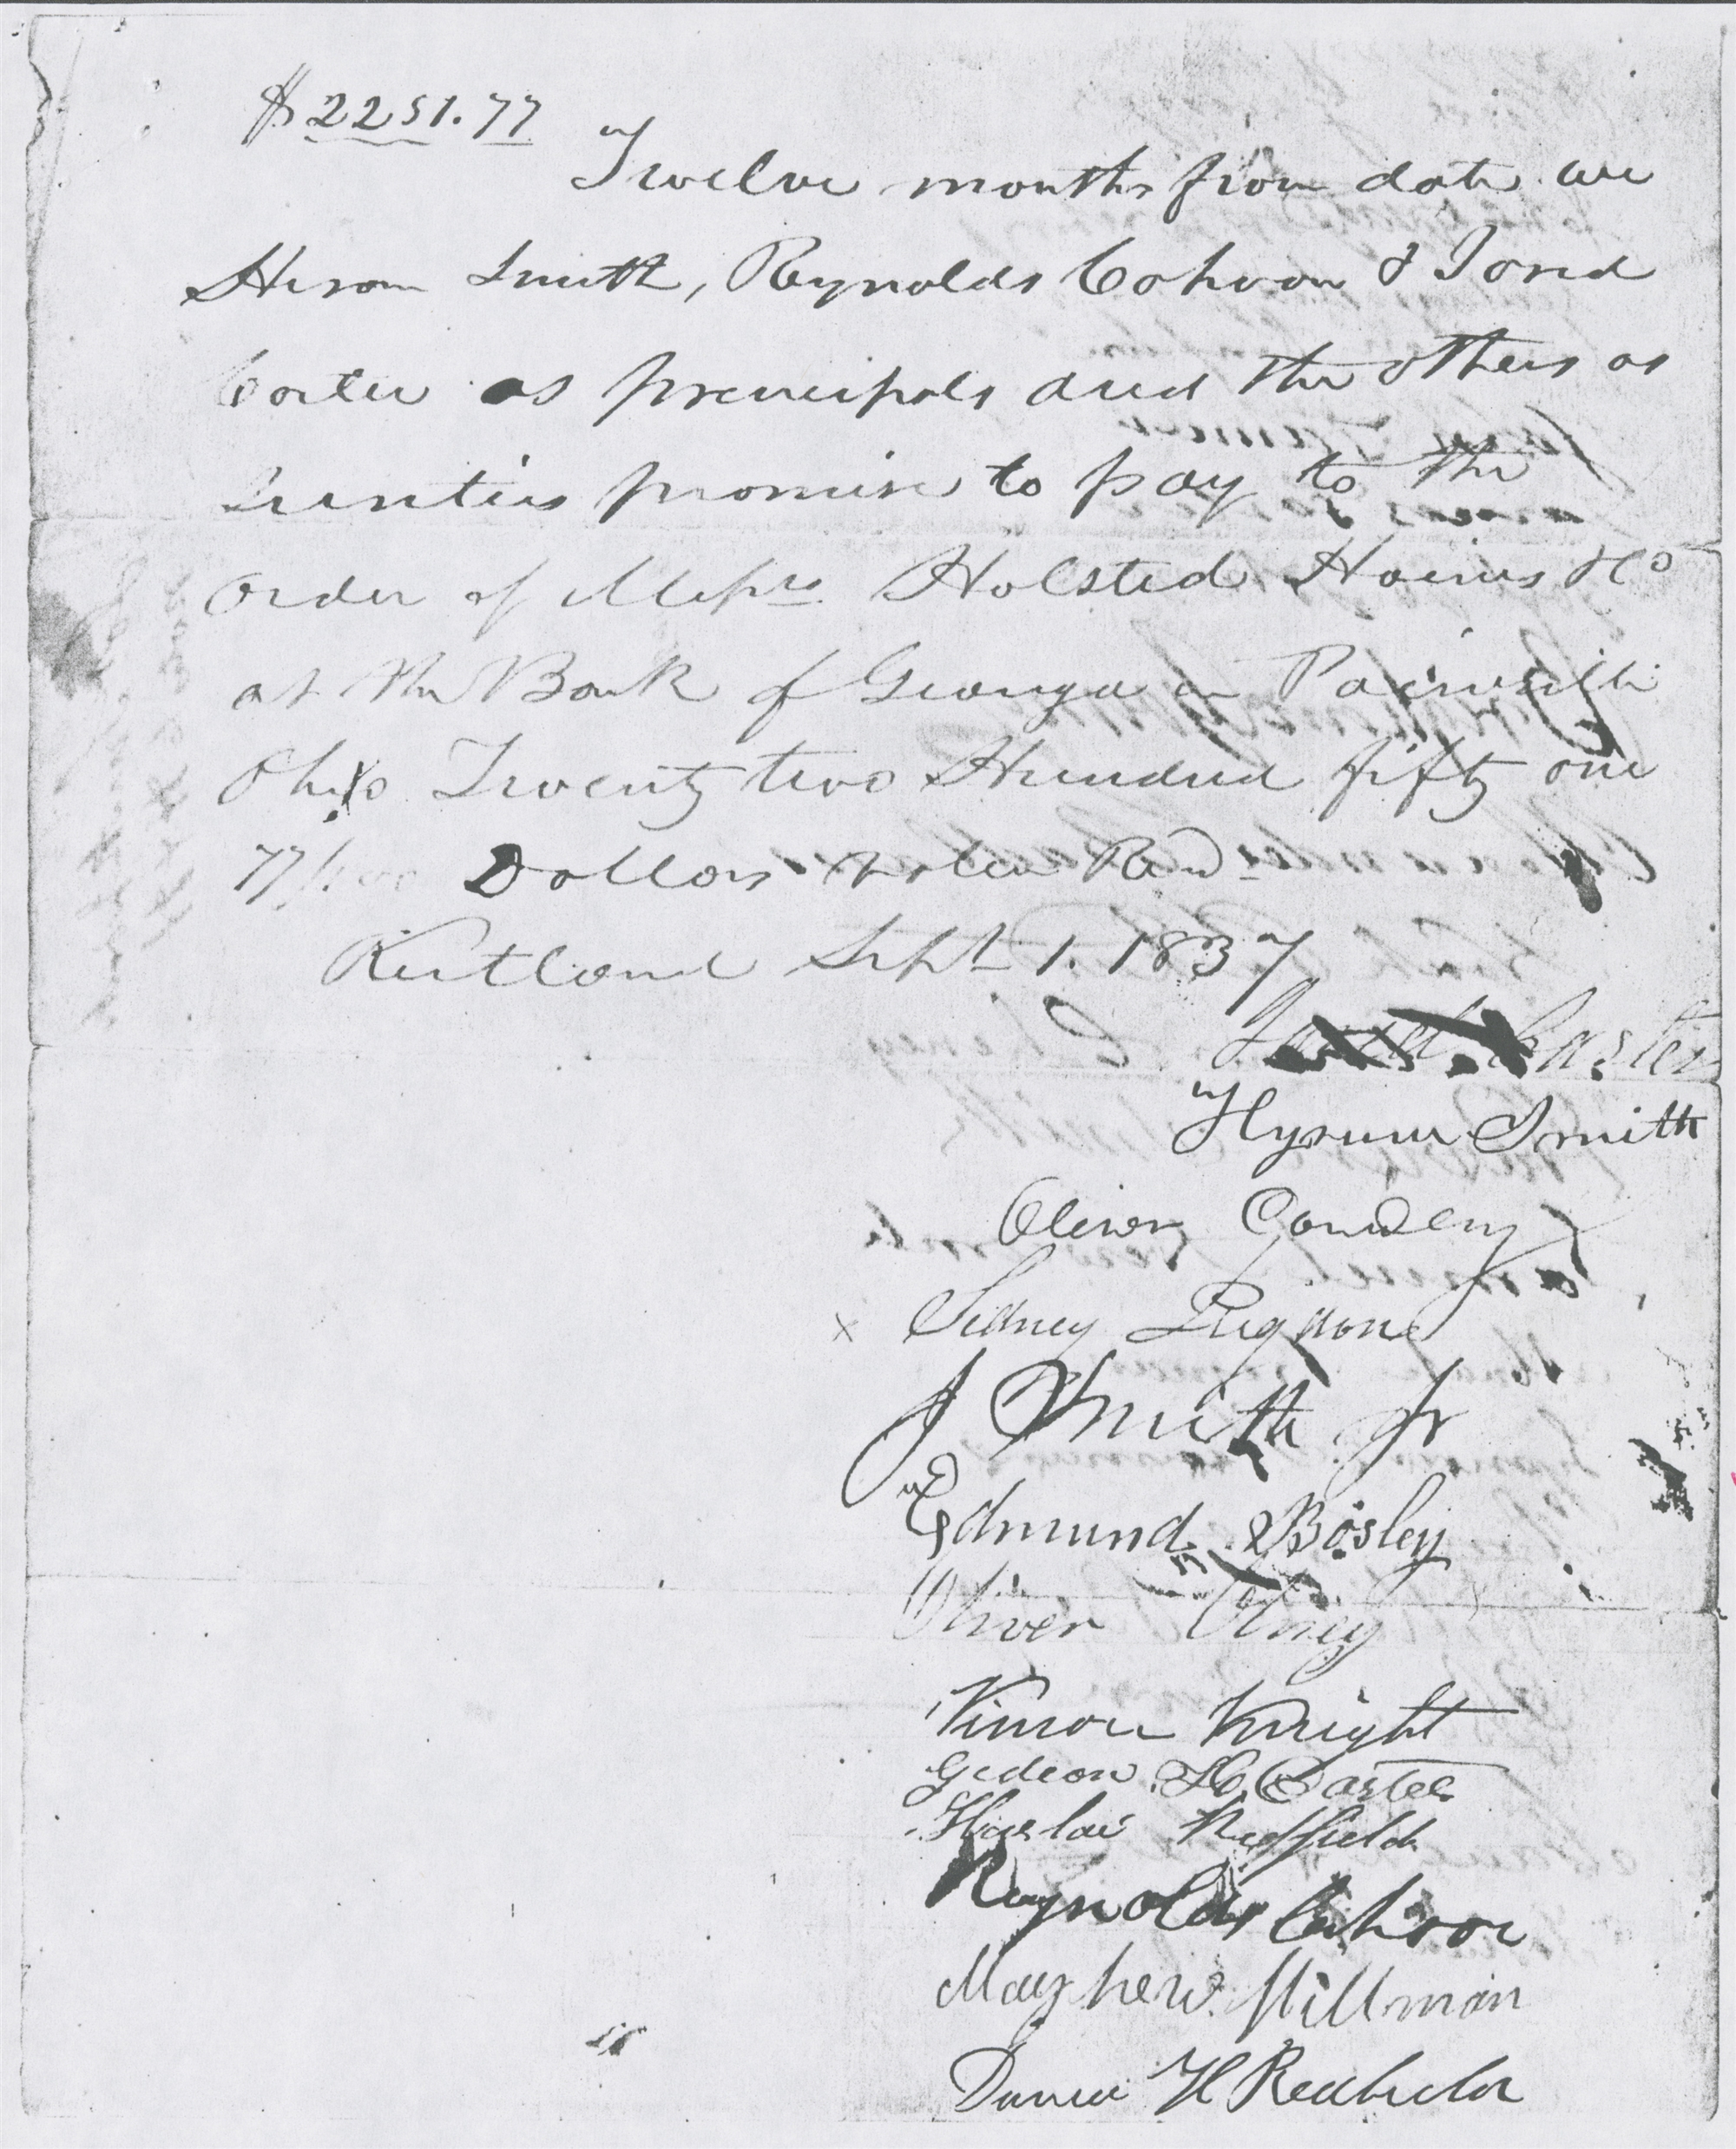 $2251.77
Twelve months from date we
Hirom Smith, Reynolds Cohoon & Jared
Carter as principals and the others as
Sureties promise to pay to the
order of Messrs Holsted Haines & Co
at the Bank of Geauga in Painsville
Ohio Twenty two Hundred fifty one
77/100 Dollars value Recd
Kirtland Sept 1. 1837
Jared Carter
Hyrum Smith
Oliver Cowdery
x Sidney Rigdon
J Smith Jr
Edmund Bosley
Oliver Olney
Vinson Knight
Gideon H Carter
Harlow Redfield
Reynolds Cahoon
Mayhew Hillman
H